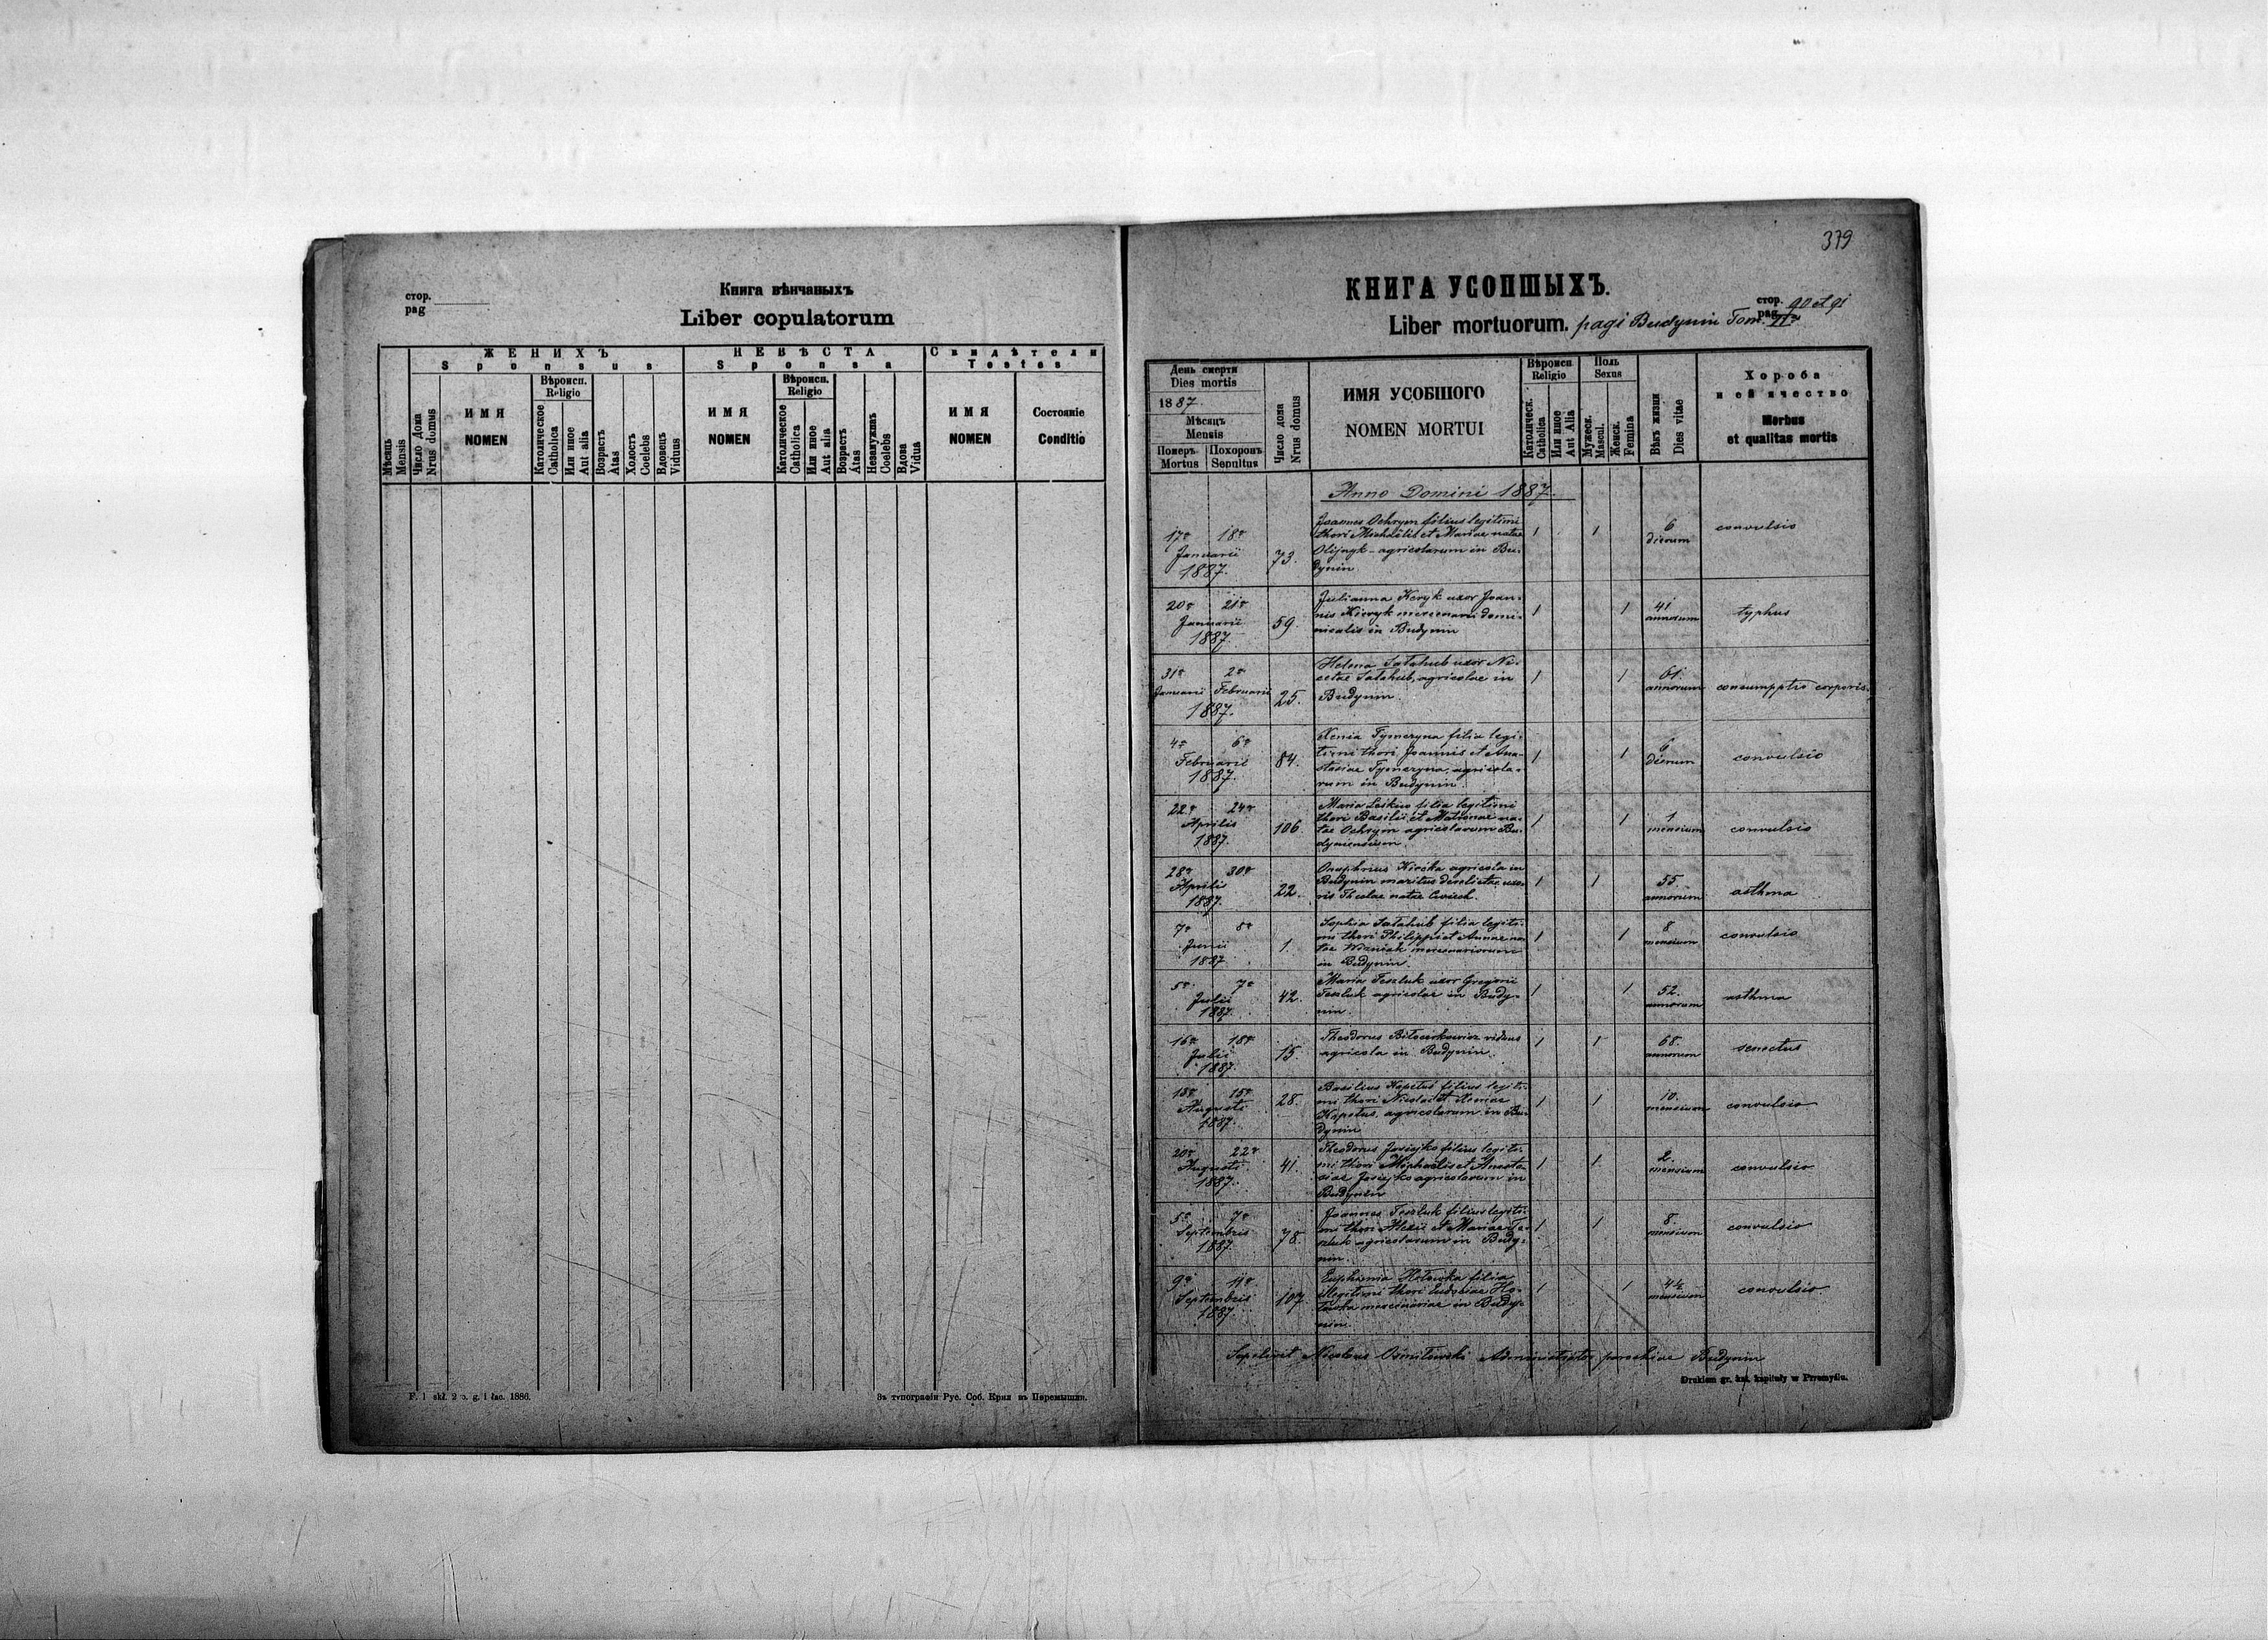 стор.
pag
Книга вѣнчаныхъ
Liber copulatorum
ЖЕНИХЪ
Sponsus
НЕВѢСТА
Sponsa
Свидѣтели
Testes
Мѣсяць
Mensis
Число Дома
Nrus domus
ИМЯ
NOMEN
Вѣроисп.
Religio
Католическое
Catholica
Или иное
Aut alia
Возрастъ
Atas
Холостъ
Coelebs
Вдовецъ
Viduus
ИМЯ
NOMEN
Вѣроисп.
Religio
Католическое
Catholica
Или иное
Aut alia
Возрастъ
Atas
Незамужна
Coelebs
Вдова
Vidua
ИМЯ
NOMEN
Состояніе
Conditio
F. 1 skł. 2 g. i łac. 1886.
Въ типографіи Рус. Соб. Крил въ Перемышли.
379
КНИГА УСОПШЫХЪ.
стор.
pag. 90 et 91
Liber mortuorum. pagi Budynin Tom.
День смерти
Dies mortis
1887.
Мѣсяцъ
Mensis
Померъ
Mortus
Похоронъ
Sepultus
Число дома
Nrus domus
ИМЯ УСОБШОГО
NOMEN MORTUI
Вѣроисп
Religio
Католическ.
Catholica
Или иное
Aut Alia
Полъ
Sexus
Мужеск.
Mascul.
Женск.
Femina
Вѣкъ жизни
Dies vitae
Хороба
и ей ячество
Morbus
et qualitas mortis
Anno Domini 1887.
17a 18a
Januarii
1887.
73.
Joannes Ochrym filius legitimi
thori Michaelis et Mariae natae
Olijnyk - agricolarum in Bu-
dynin
1 1
6
dierum
convulsio
20a 21a
Januarii
1887.
59.
Julianna Keryk uxor Joan-
nis Kieryk mercenarii domi-
nicalis in Budynin
1 1
41
annorum
typhus
31a 2a
Januarii Februarii
1887.
25.
Helena Satahub uxor Ni-
cetae Satahub, agricolae in
Budynin.
1 1
61.
annorum
consumpptio corporis.
4a 6a
Februarii
1887.
84.
Xenia Tymczyna filia legi-
timi thori Joannis et Ana-
stasiae Tymczyna, agricola-
rum in Budynin.
1 1
6
dierum
convulsio
22a 24a
Aprilis
1887.
106.
Maria Leskiw filia legitimi
thori Basilii et Matronae na-
tae Ochrym agricolarum Bu-
dyninensium.
1 1
1
mensium
convulsio
28a 30a
Aprili
1887.
22.
Onuphrius Kiecka agricola in
Budynin maritus derelictae uxo-
ris Theclae natae
1 1
55.
annorum
asthma
7a 8a
Junii
1887
1.
Sophia Satahub filia legiti-
mi thori Philippi et Annae na-
tae Wozniak mercenariorum
in Budynin.
1 1
8
mensium
convulsio
5a 7a
Julii
1887.
42.
Maria Teszluk uxor Gregorii
Teszluk agricolae in Budy-
nin.
1 1
52.
annorum
asthma
16a 18a
Julii
1887
15.
Theodorus viduus
agricola in Budynin.
1 1
68.
annorum
senectus
13a 15a
Augusti
1887.
28.
Basilius Kapetus filius legiti-
mi thori Nicolai et Xeniae
Kapetus, agricolarum in Bu-
dynin
1 1
10.
mensium
convulsio
20a 22a
Augusti
1887.
41.
Theodorus Josiejko filius legiti-
mi thori Michaelis et Anasta-
siae Josiejko agricolarum in
Budynin
1 1
2.
mensium
convulsio
5a 7a
Septembris
1887.
78.
Joannes Teszluk filius legiti-
mi thori Alexii et Mariae Te-
szluk agricolarum in Budy-
nin.
1 1
8.
mensium
convulsio
9a 11a
Septembris
1887.
107.
Euphemia filia
illegitimi thori Eudociae
mercenariae in Budy-
nin.
1 1
4½
mensium
convulsio
Sepelivit Nicolaus Osmiłowski Administrator parochiae Budynin
Drukiem gr. kat. kapituły w Przemyślu.